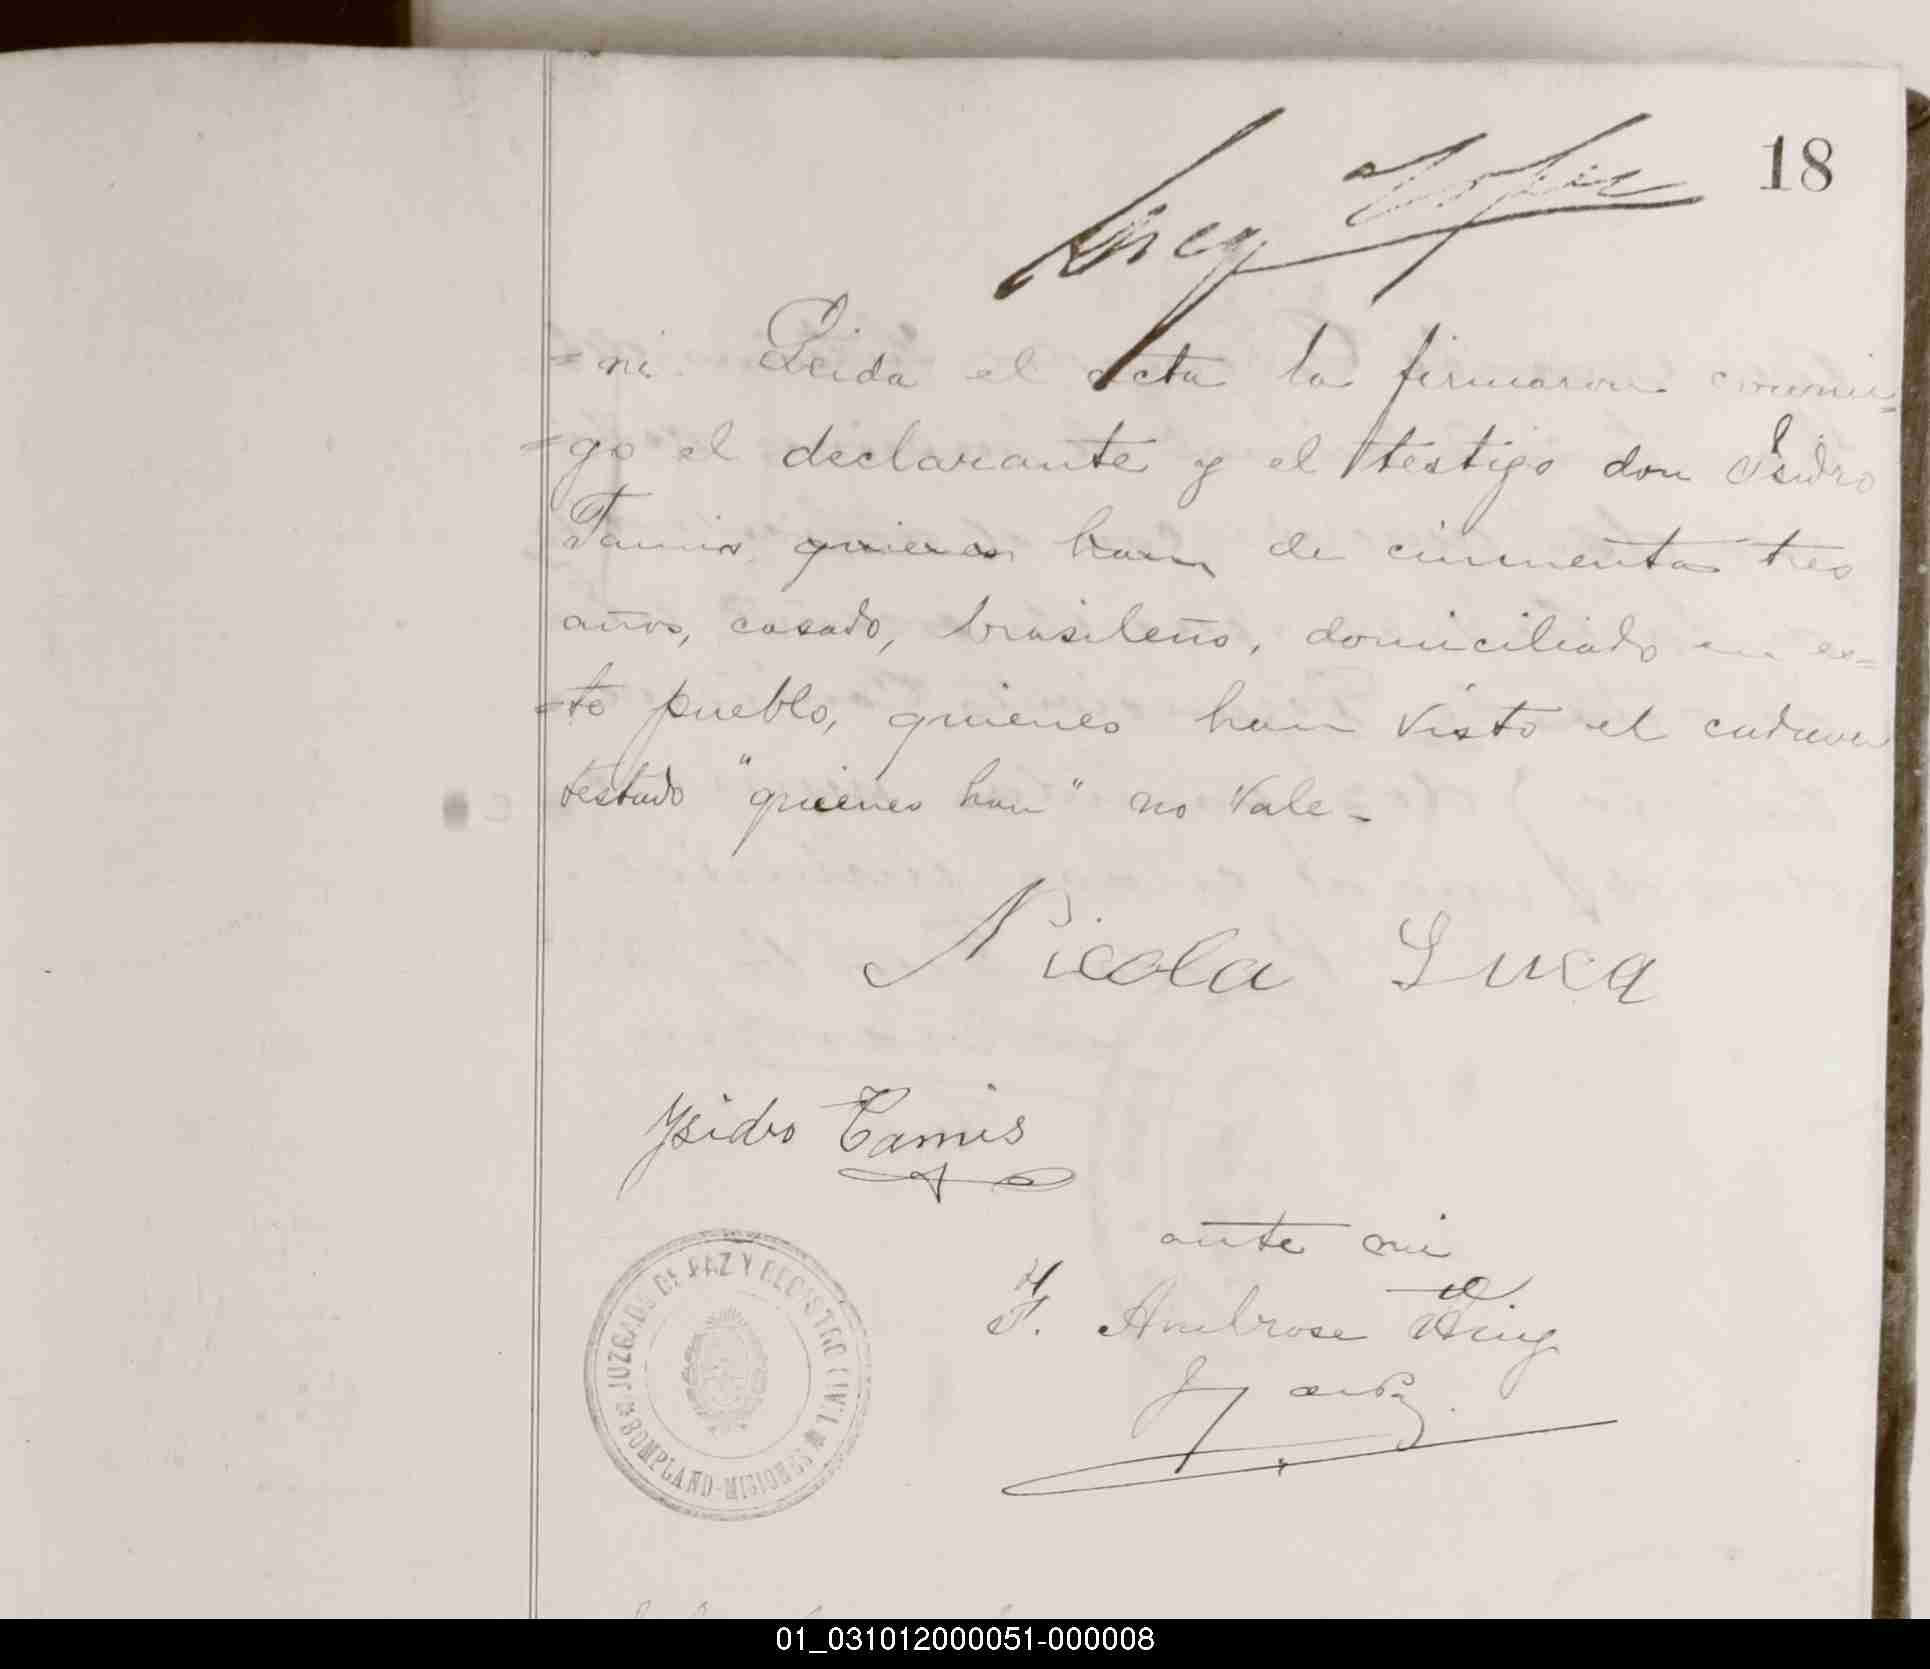 18
=ni. Leida el acta la firmaron conmi=
=go el declarante y el testigo don Isidro
Tamis quienes han de cincuenta tres
años, casado, brasileño, domiciliado en es=
=te pueblo, quienes han visto el cadaver
testado "quienes han" no vale-
Nicola Luca
Ysidro Tamis
ante mi
Ambrose
JUZGADO DE PAZ Y REGISTRO CIVIL
BOMPLAND-MISIONES
01_031012000051-000008